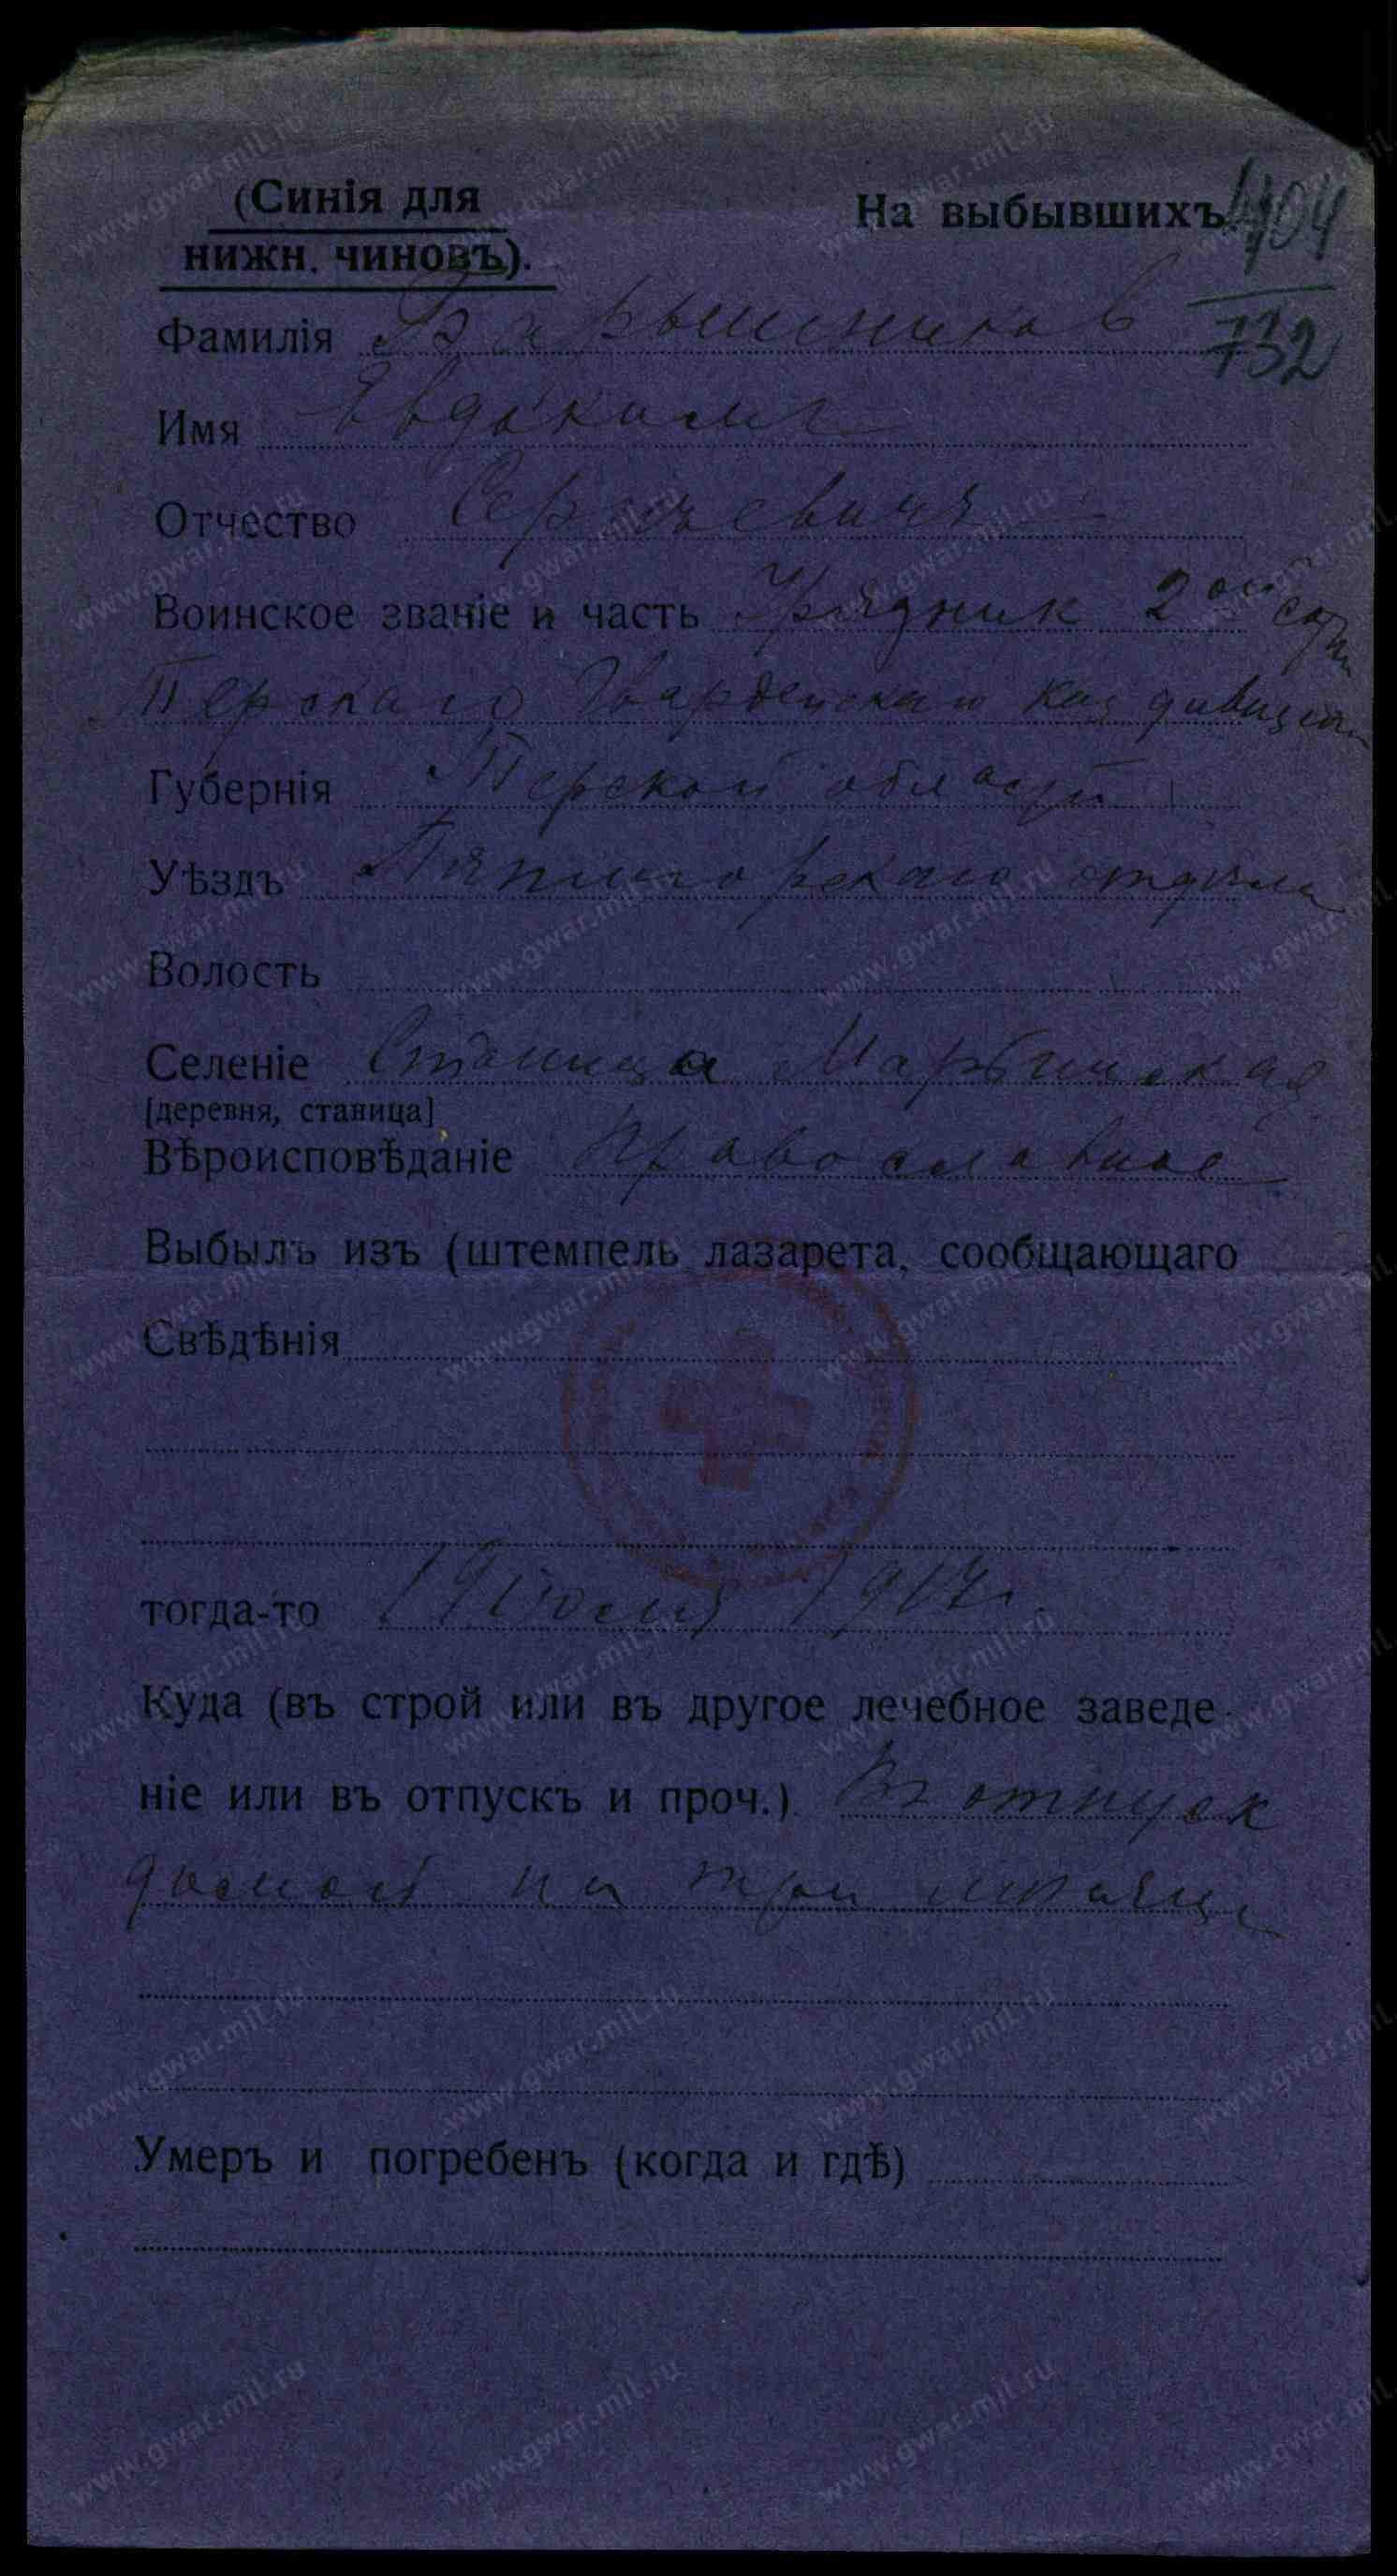 (Синія для
нижн. чиновъ).
На выбывшихъ.
404
732
Фамилія Барышников
Имя Евдокимъ
Отчество Сергѣевичъ
Воинское званіе и часть Урядник 2ой сотни
Терскаго Гвардейскаго Каз дивизіона
Губернія Терской области
Уѣздъ Пятигорскаго отдѣла
Волость
Селеніе Станица Марьинская
[деревня, станица]
Вѣроисповѣданіе православное
Выбылъ изъ (штемпель лазарета, сообщающаго
Свѣдѣнія
тогда-то 19 1917г.
Куда (въ строй или въ другое лечебное заведе-
ніе или въ отпускъ и проч.) Въ отпуск
домой на три мѣсяца
Умеръ и погребенъ (когда и гдѣ)
www.gwar.mil.ru